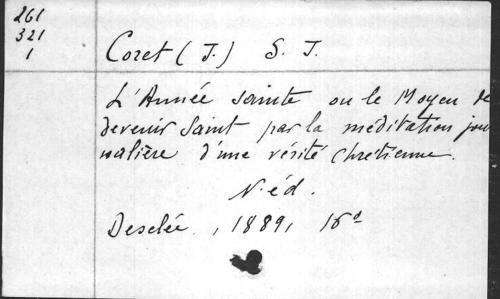 261
321
1
Coret (J.) S. J.
L'Année sainte ou le Moyen de
devenir Saint par la méditation jour
nalière d'une vérité chrétienne.
N. éd.
Desclée, 1889, 16º